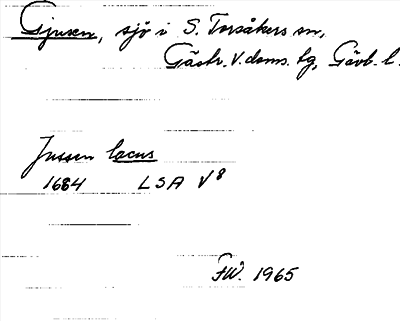 Gjusen, sjö i S. Torsåkers sn,
Gästr. V. doms. tg, Gävb. l.
Jussen lacus
1684 LSA V8
FW. 1965